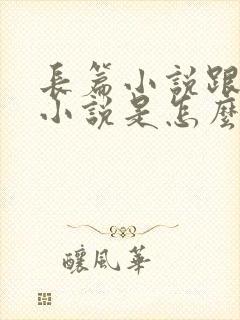 長篇小說跟
小說是怎麼
釀風華